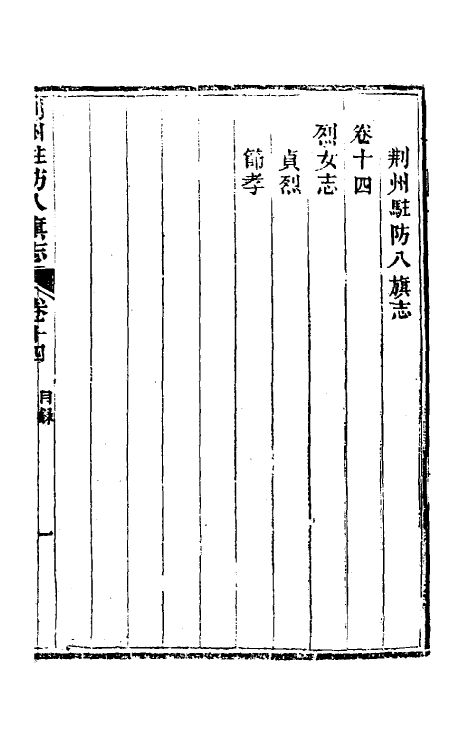 荆州駐防八旗志
卷十四
烈女志
貞烈
節孝
荆州駐防八旗志
卷十四
目録
一